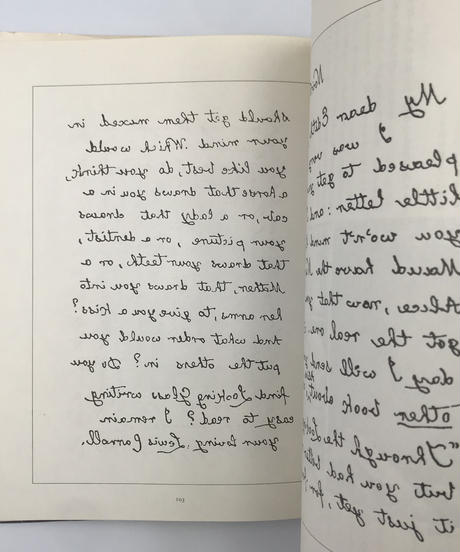 Nov
My dear Edi
I was very
pleased to get
little letter: and
you won't mind
Maud have the
Alice, now that
got the real one
day I will send
other book about
"Through the
but you had
it just yet, for
should get them mixed in
your mind. Which would
you like best, do you think,
a horse that draws you in a
cab, or a lady that draws
your picture, or a dentist,
that draws your teeth, or a
Mother, that draws you into
her arms, to give you a kiss?
And what order would you
put the others in? Do you
find Looking Glass writing
easy to read? I remain
your loving, Lewis Carroll.